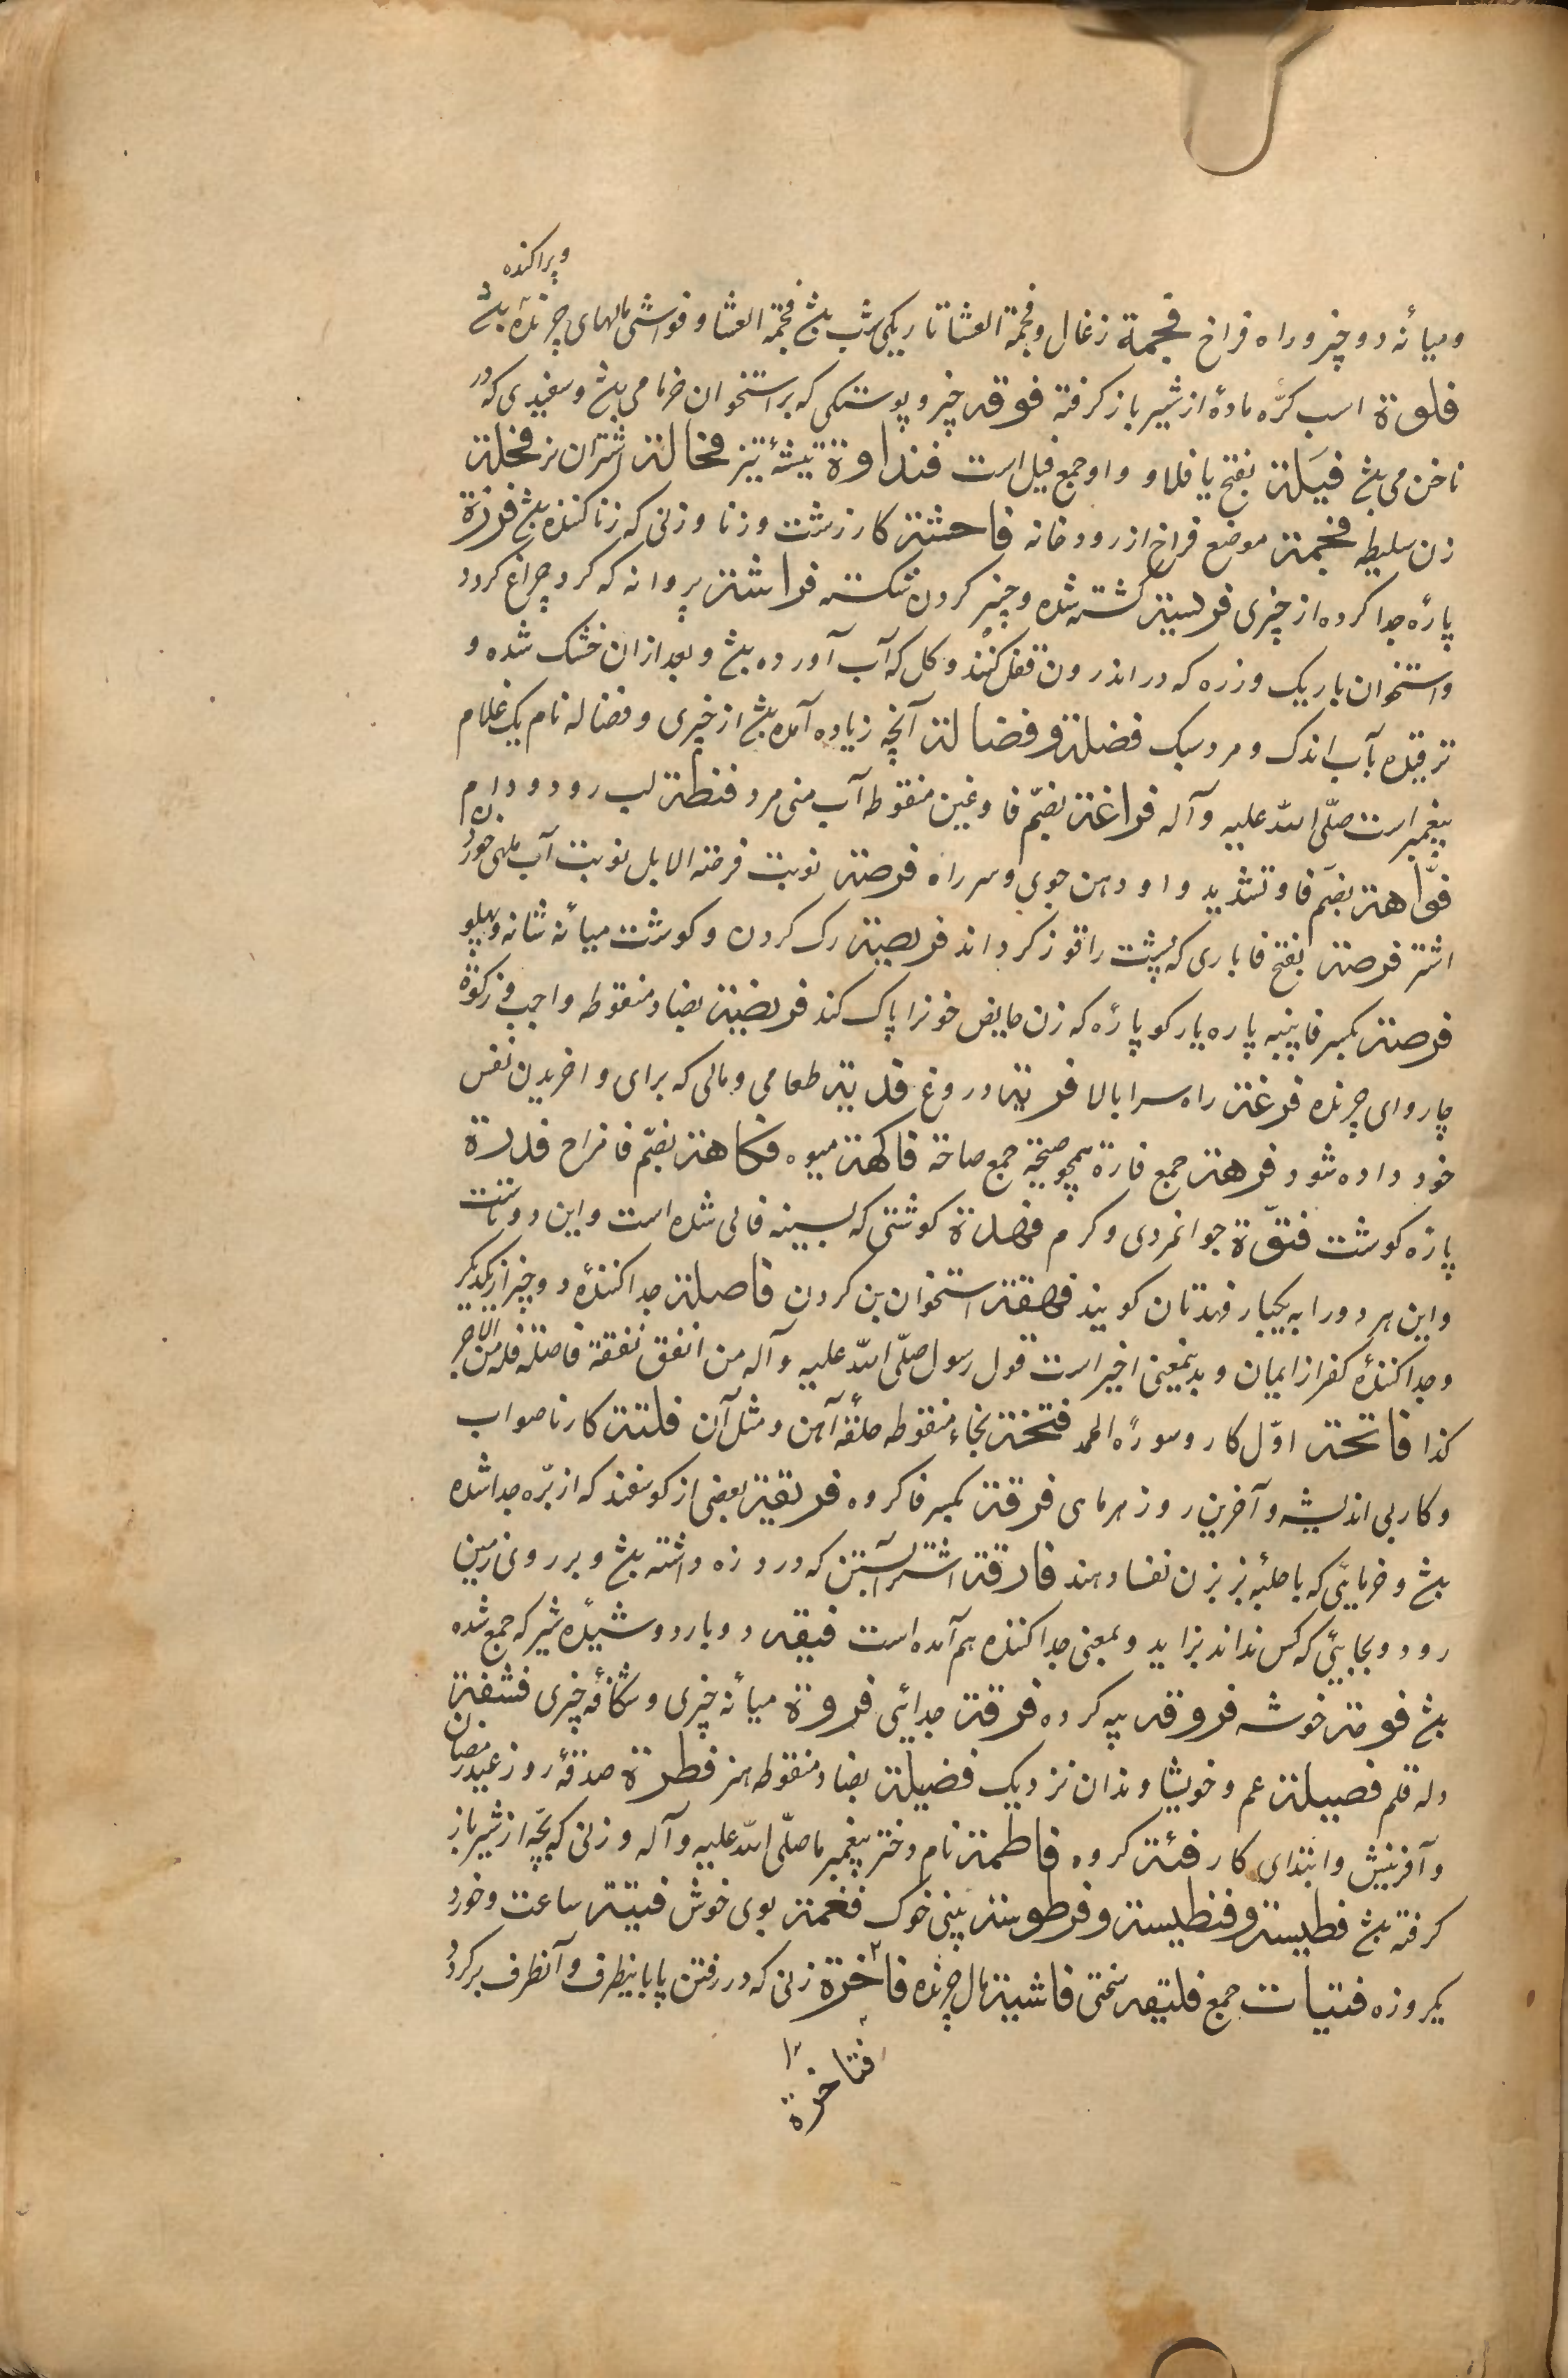 وپراکنده
ومیانه دو چیز وراه فراخ فحمة زغال وفحمة العشا تاریکی شب بش فحمة العشا وفواشی مالهای چرنده بش
فلوة اسب کرّه ماده از شیر باز کرفته فوقه چیز وپوستکی که بر استخوان خرما می بش وسفیدی که در
ناخن می بش فیَلة بفتح یا فلاو واو جمع فیل است فنداوة تیشهٔ تیز فحالة اشتران نر فحلة
زن سلیطه فجمة موضع فراخ از رودخانه فاحشة کار زشت وزنا وزنی که زنا کننده بش فرزة
پارهٔ جدا کرده از چیزی فریسة کشته شده وچیز کردن شکسته فراشة پروانه که کرد چراغ کردد
واستخوان باریک وزره که در اندرون قفل کنند وکل که آب آورده بش وبعد از ان خشک شده و
ترقیده بآب اندک ومرد سبک فضلة وفضالة آنچه زیاده آمده بش از چیزی وفضاله نام یک غلام
پیغمبر است صلّی الله علیه وآله فراغة بضمّ فا وغین منقوطه آب منی مرد فنطة لب رود ودام
فوّاهة بضمّ فا وتشدید واو دهن جوی وسر راه فرصة نوبت فرصة الابل نوبت آب خورد
اشتر فرصة بفتح فا باری که پشت را قوز کرداند فریصة رک کردن وکوشت میانهٔ شانه وپهلو
فرصة بکسر فا پنبه پاره یا رکو پارهٔ که زن حایض خونرا پاک کند فریضة بضاد منقوطه واجب وزکوة
چاروای چرنده فرغة راه سرا بالا فریة دروغ فدیة طعامی ومالی که برای واخریدن نفس
خود داده شود فرهة جمع فارة همچو صحبة جمع صاحة فاکهة میوه فکاهة بضمّ فا مزاح فدرة
پارهٔ کوشت فتوّة جوانمردی وکرم فهدة کوشتی که بسینه فالی شده است واین دو تاست
واین هر دو را به یکبار فهدتان کویند فهقة استخوان بن کردن فاصلة جدا کنندهٔ دو چیز از یکدیکر
وجدا کنندهٔ کفر از ایمان وبدینمعنی اخیر است قول رسول صلّی الله علیه وآله من انفق نفقة فاصلة فله من الاجر
کذا فاتحة اوّل کار وسورهٔ الحمد فتخة بخاء منقوطه حلقهٔ آهن ومثل آن فلتة کار ناصواب
وکار بی اندیشه وآخرین روز هر ماهی فرقة بکسر فا کروه فریقة بعضی از کوسفند که از برّه جدا شده
بش وخرمایی که با حلبه پزند بزن نفسا دهند فارقة اشتر آبستن که درد زه داشته بش وبر روی زمین
رود وبجایی که کس نداند بزاید وبمعنی جدا کننده هم آمده است فیقه دو بار دوشیدهٔ شیر که جمع شده
بش فومة خوشه فروقه پیه کرده فرقة جدائی فروة میانهٔ چیزی وشکافهٔ چیزی فشفة
دله قلم فصیلة عم وخویشاوندان نزدیک فضیلة بضاد منقوطه هنر فطرة صدقهٔ روز عید رمضان
وآفرینش وابتدای کار فئة کروه فاطمة نام دختر پیغمبر ما صلّی الله علیه وآله وزنی که بچّه از شیر باز
کرفته بش فطیسة وفنطیسة وفرطوسة بینی خوک فغمة بوی خوش فیقة ساعت وخورد
یکروزه فتیات جمع فلیقه سختی فاشیة مال چرنده فاخرة زنی که در رفتن پا باینطرف وآنطرف برکردد
فتاخرة